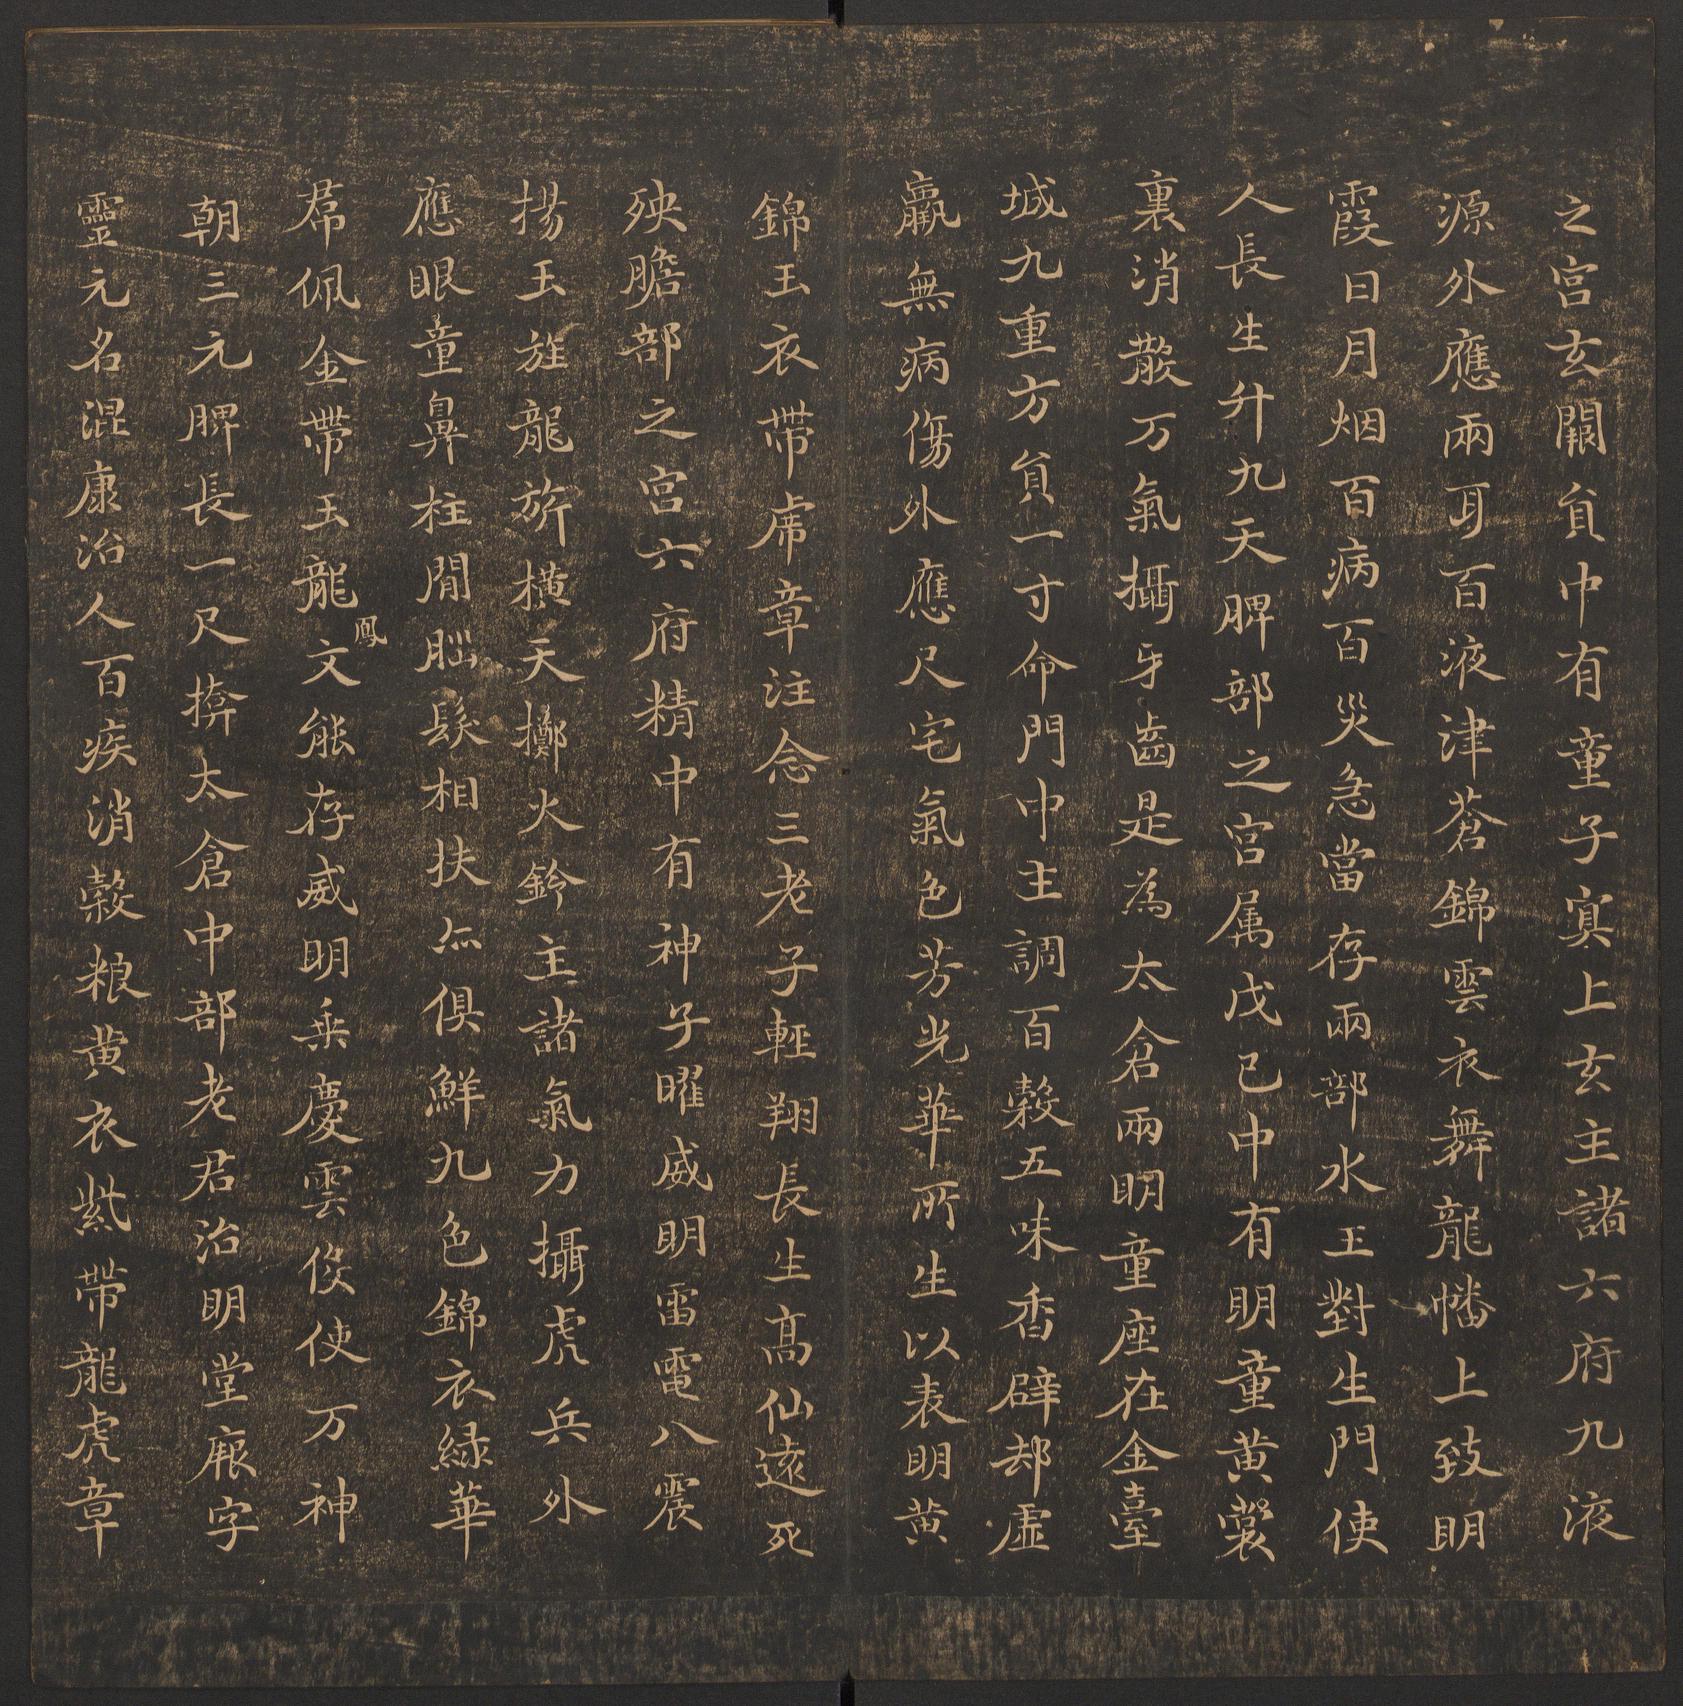 之宮玄闕貟中有童子㝠上玄主諸六府九液
源外應兩耳百液津蒼錦雲衣舞龍幡上致明
霞日月烟百病百災急當存兩部水王對生門使
人長生升九天脾部之宮属戊己中有明童黄裳
裏消散万氣攝牙齒是為太倉兩明童座在金臺
城九重方貟一寸命門中主調百糓五味香辟却虛
羸無病傷外應尺宅氣色芳光華所生以表明黄
錦玉衣帶席章注念三老子輕翔長生高仙遠死
殃膽部之宮六府精中有神子曜威明雷電八震
揚玉旌龍旂橫天擲火鈴主諸氣力攝虎兵外
應眼童鼻柱間腦髮相扶亦俱鮮九色錦衣緑華
帬佩金帶玉龍鳳文能存威明乗慶雲役使万神
朝三元脾長一尺揜太倉中部老君治明堂厫字
靈元名混康治人百疾消糓粮黄衣紫帶龍虎章